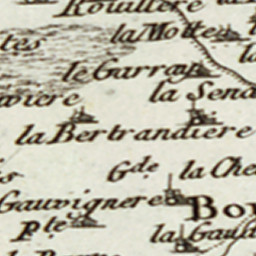 Rouillere
la Motte
tes
le Garran
la Sena
viere
la Bertrandiere
Gde la Che
Gauvignere
Bou
Pte
la Gaud